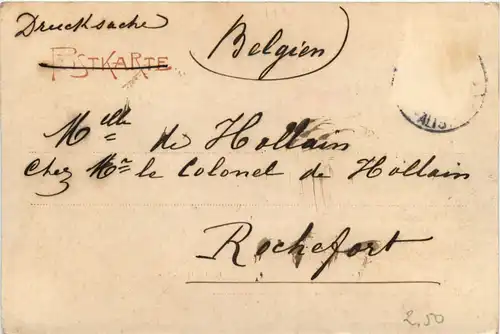 Drucksache
POSTKARTE
Belgien
Melle de Hollain
Chez Mr le Colonel de Hollain
Rochefort
2,50